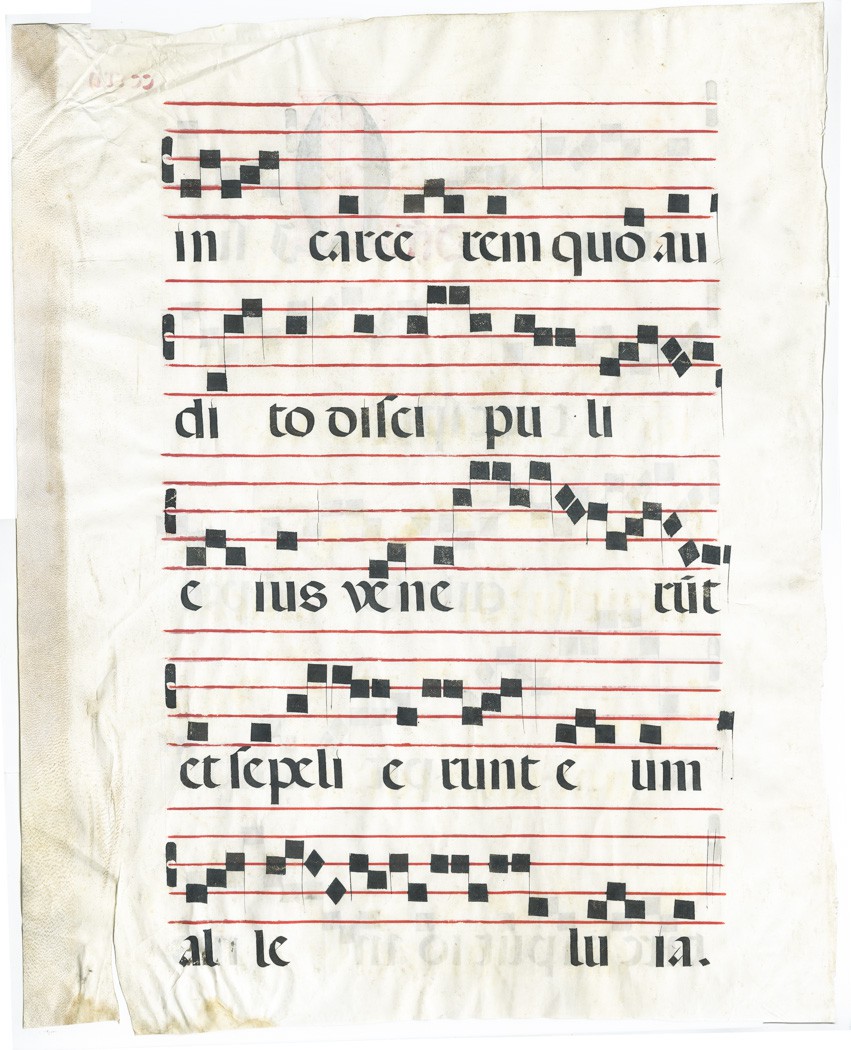 in carce rem quo au
di to disci pu li
e ius vene rūt
et sepeli e runt e um
al le lu ia.